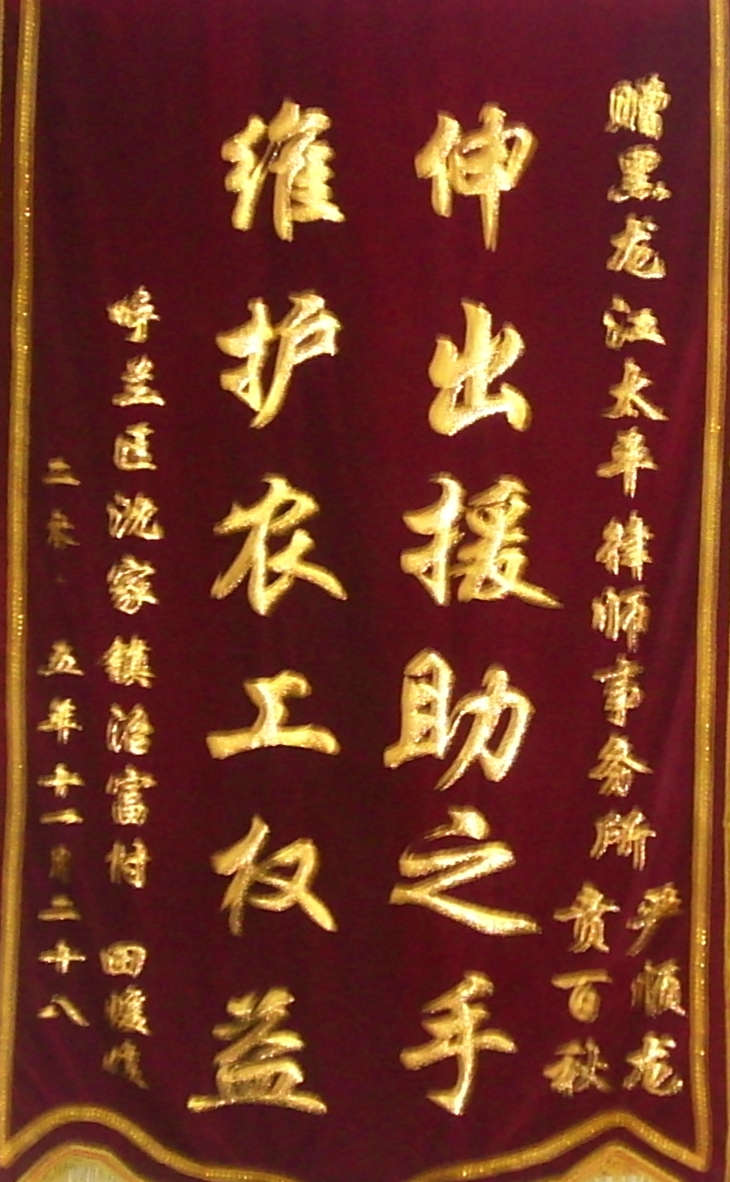 赠黑龙江太平律师事务所
严顺龙
贲百秋
伸出援助之手
维护农工权益
呼兰区沈家镇治富村 田
二零 五年十一月二十八